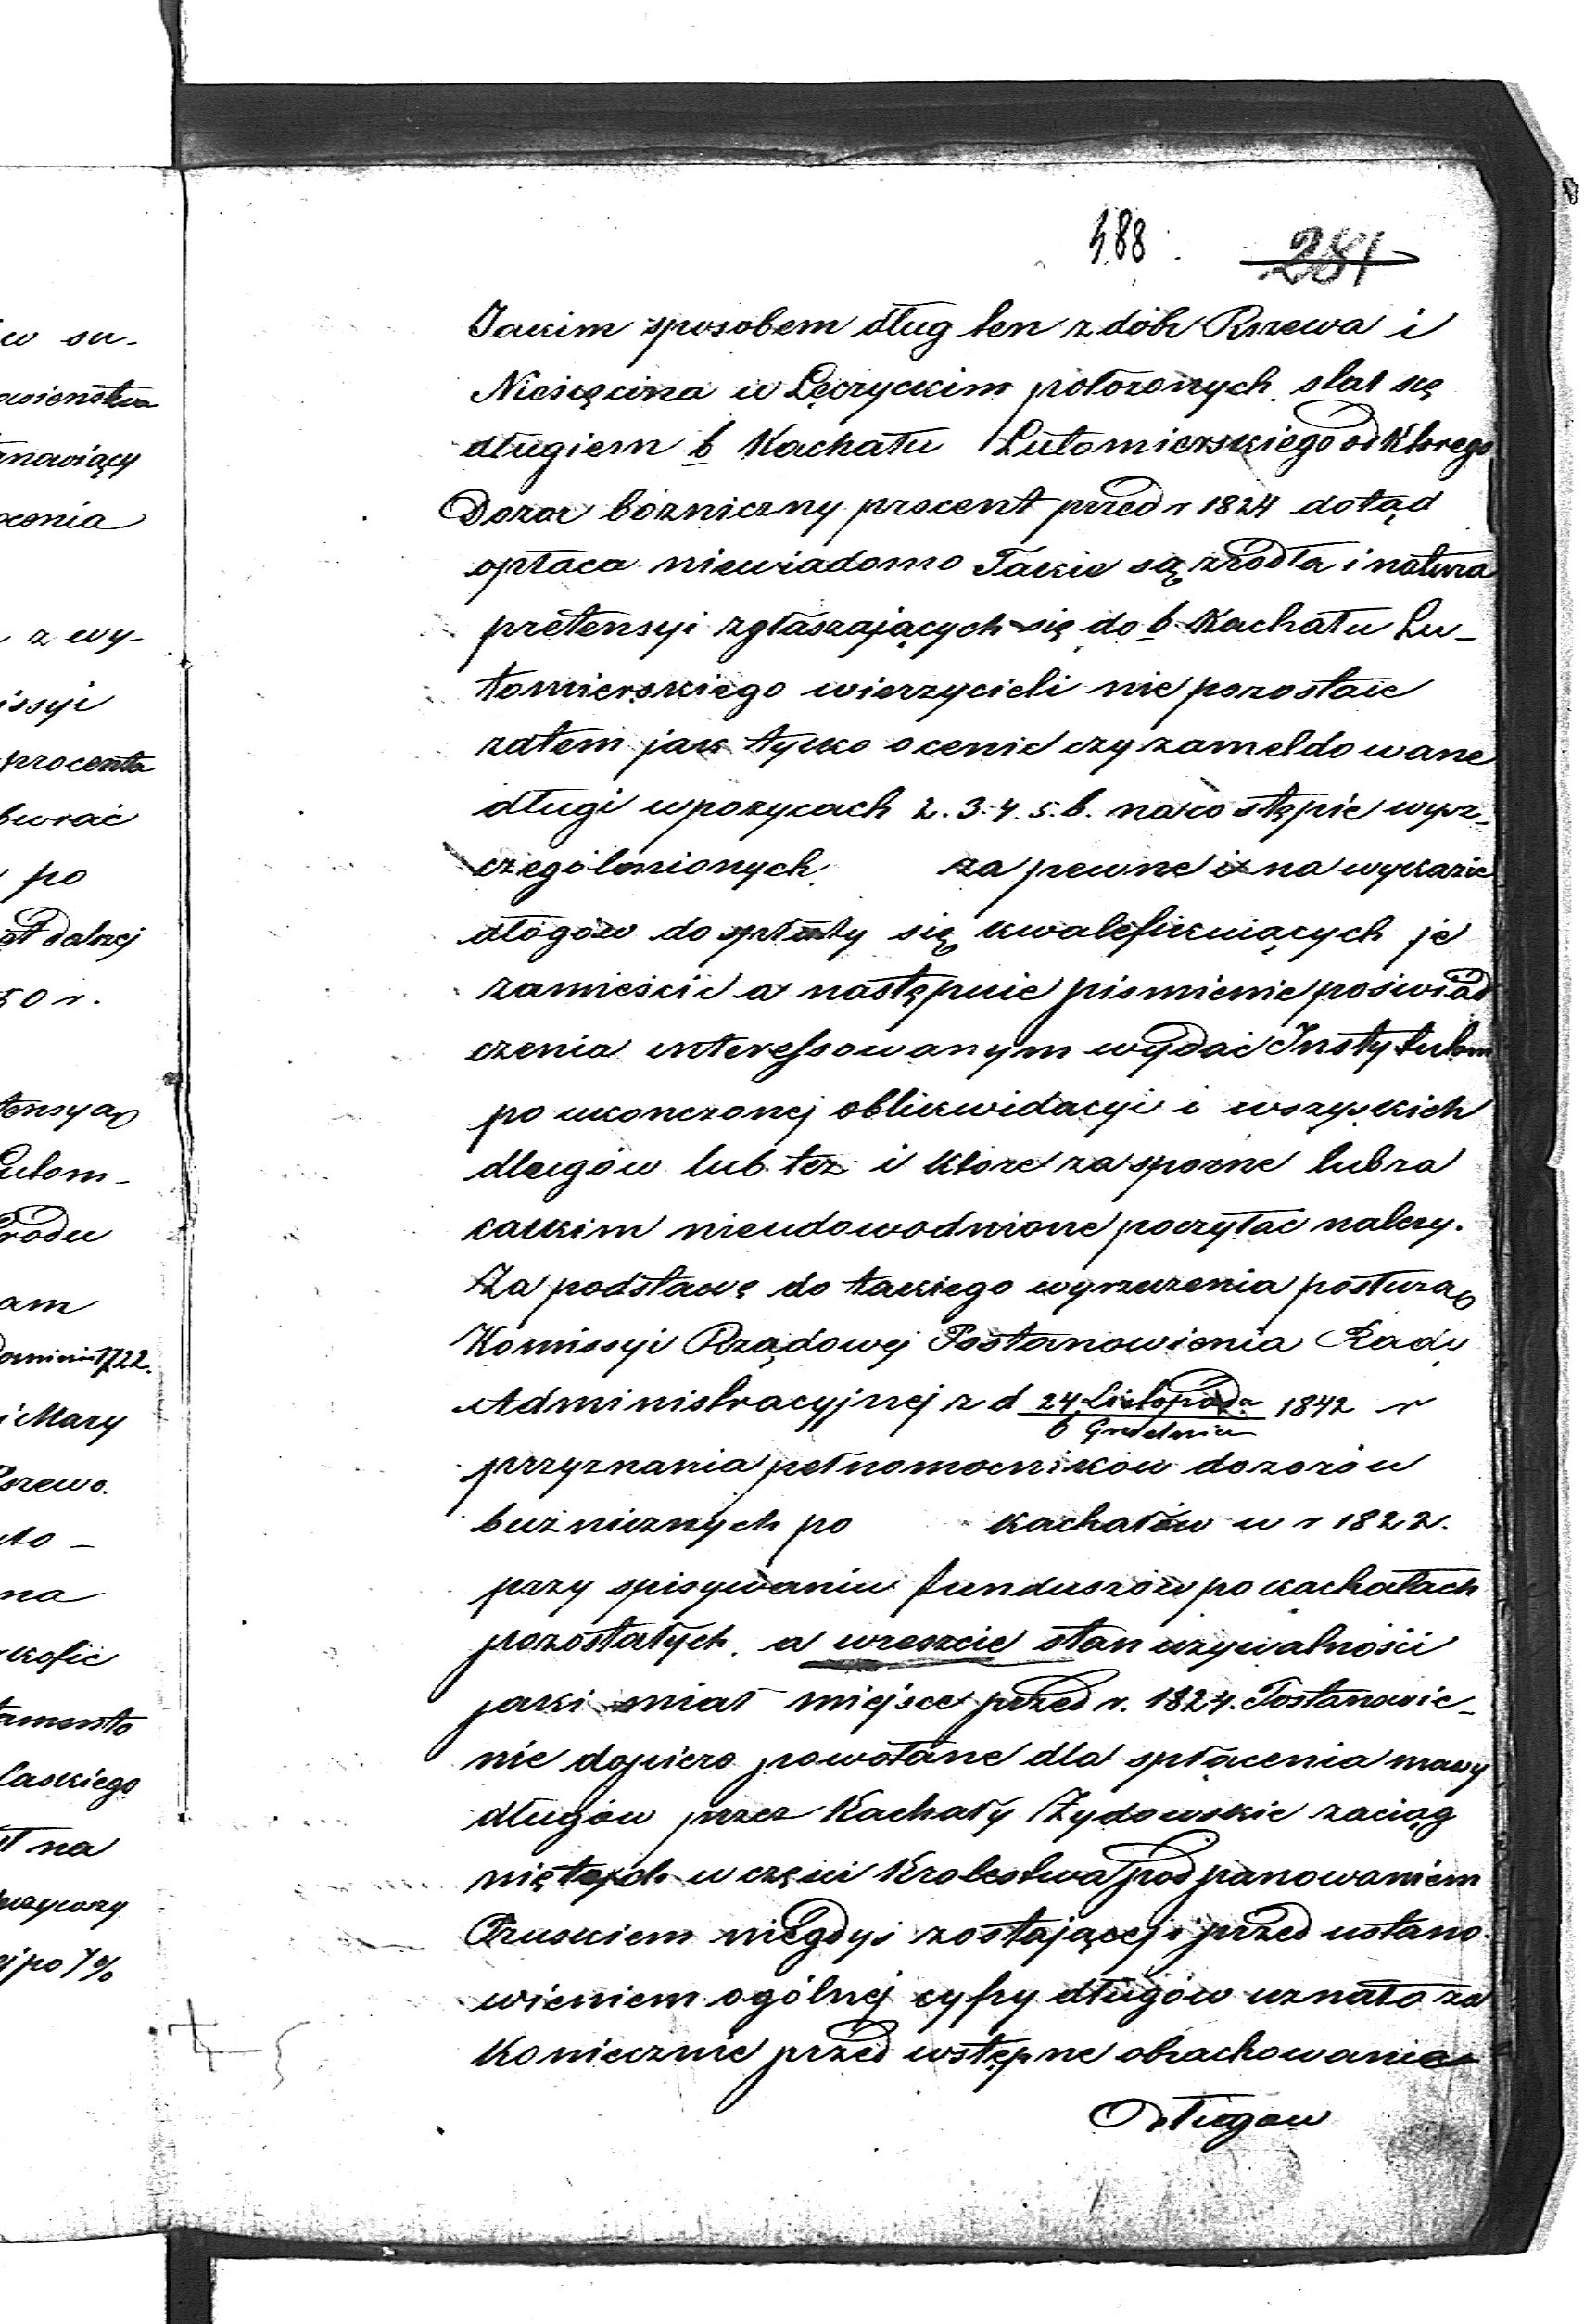 488. 281
Jakim sposobem dług ten z dóbr Rszewa i
Niesięcina w Łęczyckim położonych, stał się
długiem b Kachału Lutomierskiego od Którego
Dozór bózniczny procent przed r 1824 dotąd
opłaca niewiadomo Takie są zrodła i natura
pretensyi zgłaszających się do b. Kachału Lu-
tomierskiego wierzycieli nie pozostaie
zatem jak tylko ocenić czy zameldowane
długi w pozycach 2. 3. 4. 5. 6. na wstępie wysz-
czególnionych za pewne i na wykazie
długów do spłaty się kwalefikuiących je
zamieścić a następnie pismienie poświad
czenia interessowanym wydać Instytutom
po ukonczonej oblikwidacyi i wszyskich
długów lub tez i ktore za sporne lub za
całkim nieudowodnione poczytać nalezy.
Za podstawę do takiego wyrzeczenia posłużą
Komissyi Rządowej Postanowienia Rady
Administracyjnej z d 24 Listopada / 6 Grudnia 1842 r
przyznania pełnomocników dozorów
bużnicznych po kachałów w r 1822.
przy spisywaniu funduszów po kachałach
pozostałych. a wreszcie stan używalności
jaki miał miejsce przed r. 1824. Postanowie-
nie dopiero powołane dla spłacenia massy
długów przez Kachały Żydowskie zaciąg
niętych w części Krolestwa pod panowaniem
Pruskiem niegdyś zostającej i przed ustano-
wieniem ogólnej cyfry długów uznało za
Koniecznie przed wstępne obrachowanie
Długow